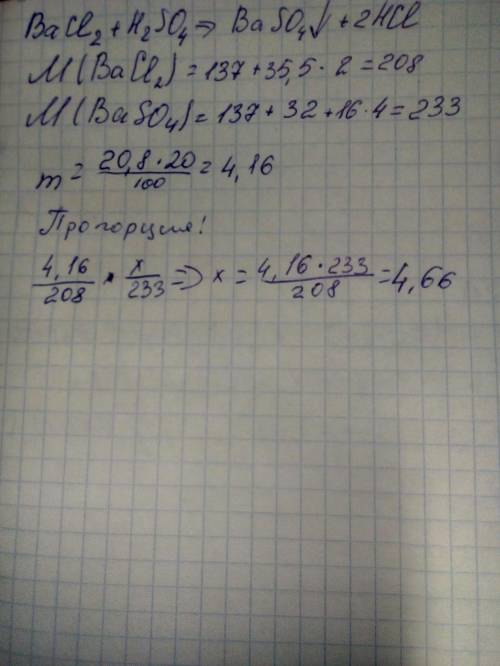 BaCl₂ + H₂SO₄ ⇒ BaSO₄↓ + 2HCl
M(BaCl₂) = 137 + 35,5 · 2 = 208
M(BaSO₄) = 137 + 32 + 16 · 4 = 233
m = 20,8 · 20 / 100 = 4,16
Прогорция!
4,16 / 208 · x / 233 ⇒ x = 4,16 · 233 / 208 = 4,66